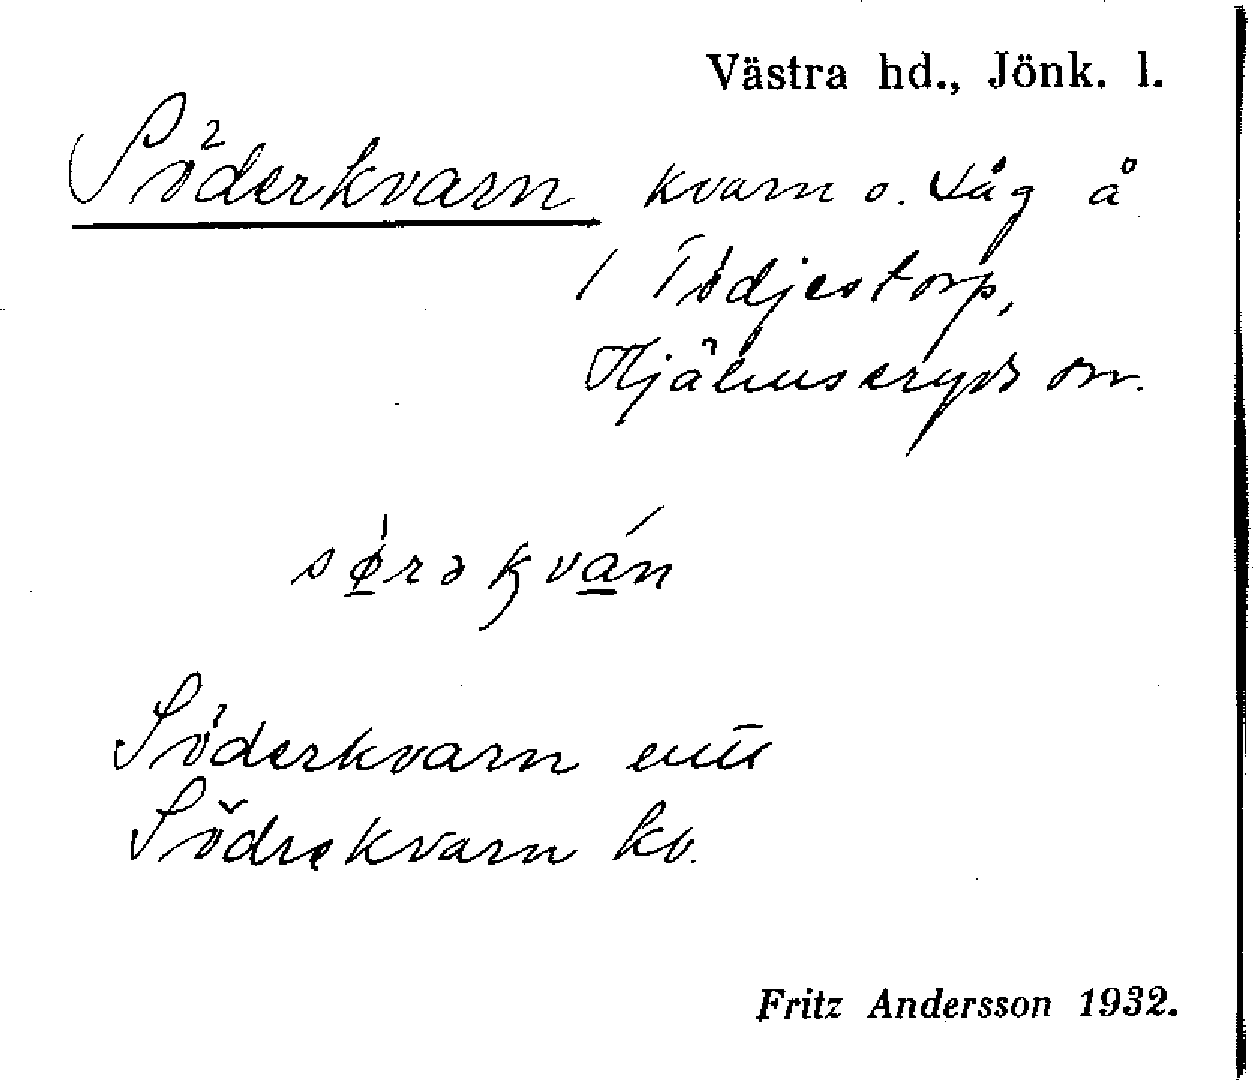 Västra hd., Jönk. l.
Söderkvarn kvarn o. såg å
1 Tödjestorp,
Hjälmseryds sn.
sørəkván
Söderkvarn
Södrekvarn kv.
Fritz Andersson 1932.